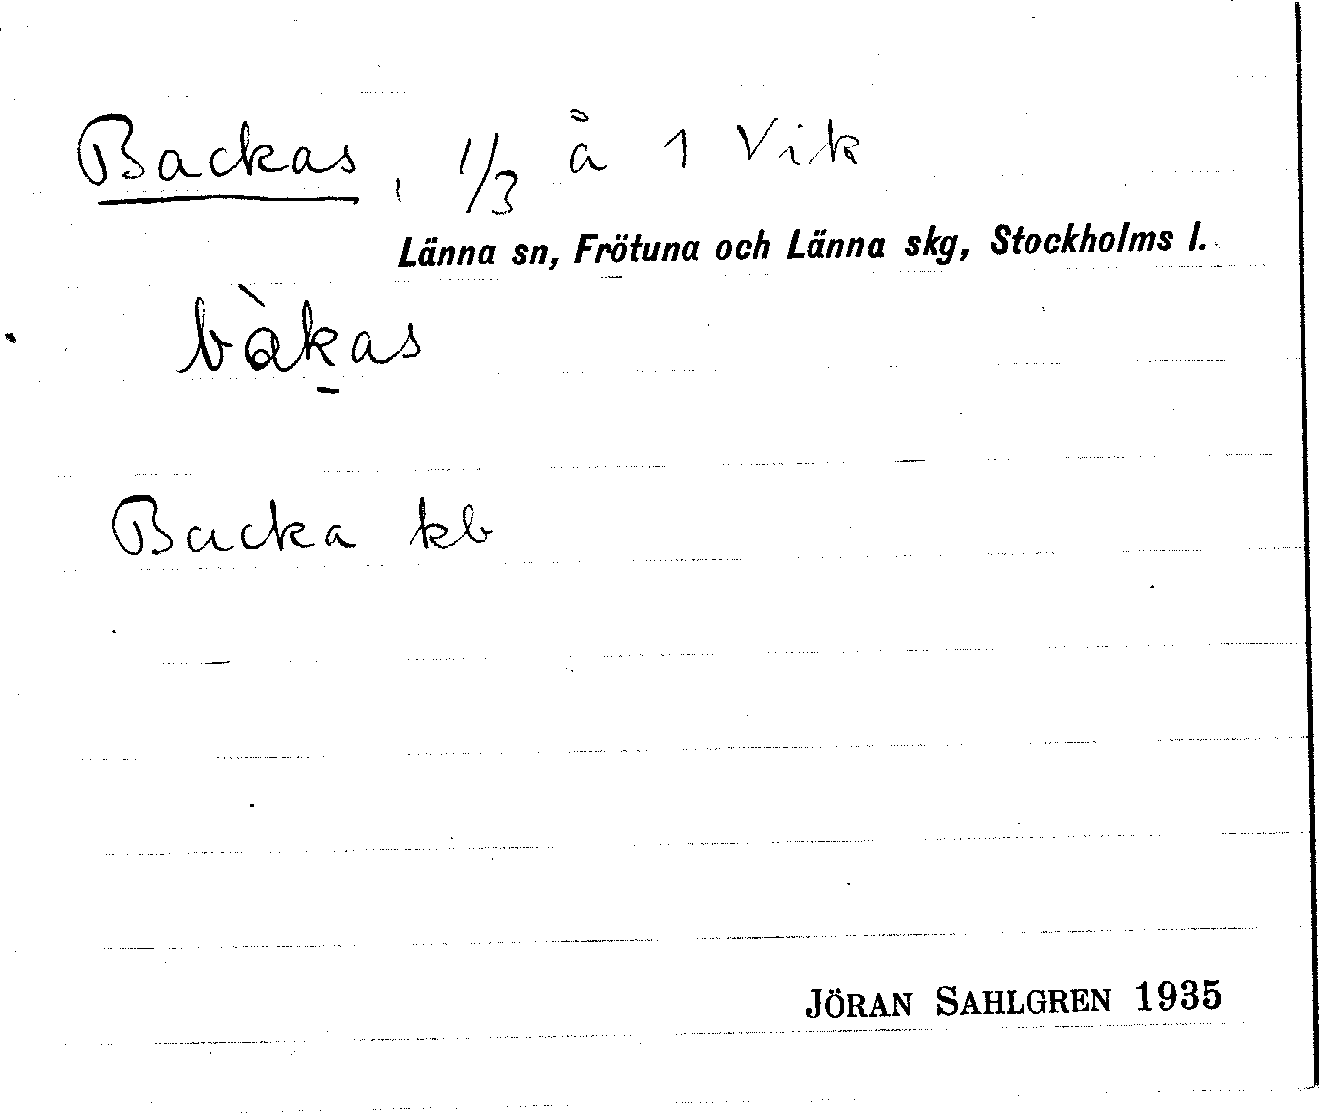 Backas, 1/3 å 1 Vik
Länna sn, Frötuna och Länna skg, Stockholms l.
bàk̠as
Backa kb
JÖRAN SAHLGREN 1935